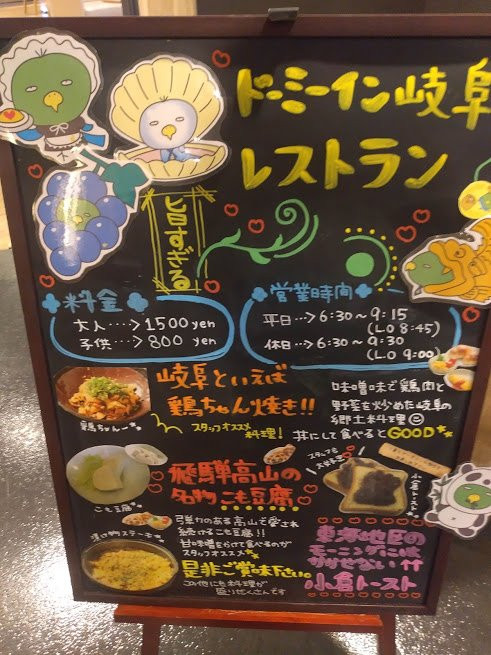 ドーミーイン岐阜
レストラン
旨すぎる
料金
大人…>1500yen
子供…>800yen
営業時間
平日…>6:30~9:15
(LO 8:45)
休日…>6:30~9:30
(LO 9:00)
岐阜といえば
鶏ちゃん焼き!!
スタッフオススメ
料理!
鶏ちゃん
味噌味で鶏肉と
野菜を炒めた岐阜の
郷土料理☺
丼にして食べるとGOOD
飛騨高山の
名物こも豆腐
こも豆腐
弾力のある高山で愛され
続けるこも豆腐!!
甘味噌をかけて食べるのが
スタッフオススメ
漬け物ステーキ
是非ご賞味下さい。
この他にも料理が
盛りだくさんです
スタッフも
大好き
東海地区の
モーニングには
かかせない!!
小倉トースト